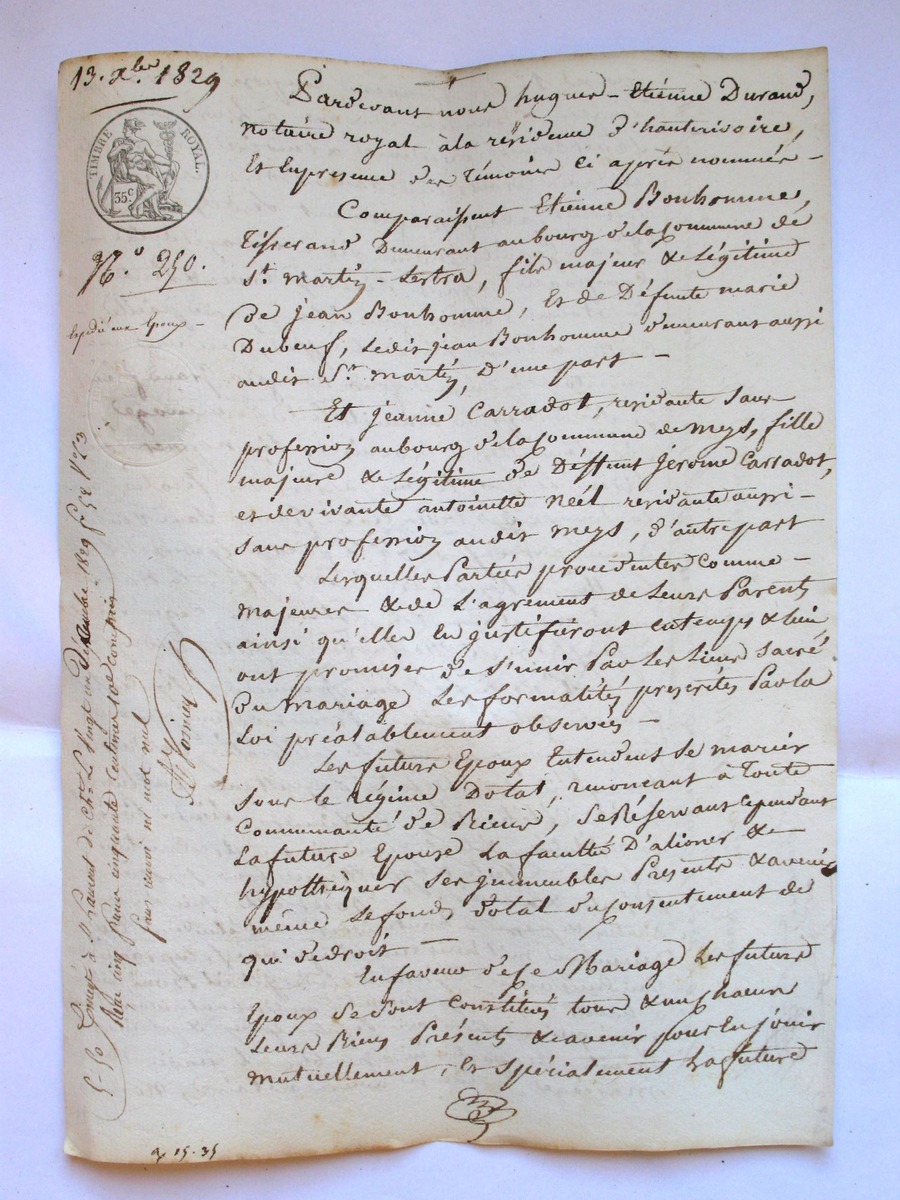 13. Xbre 1829
TIMBRE ROYAL.
35 c
N.o 250.
Expédié aux Epoux -
Pardevant nous hugues - Etienne Durand,
notaire royal à la résidence d'hauterivoire,
Et En presence des témoins ci après nommés -
Comparaissent Etienne Bonhomme,
Tisserand Demeurant au bourg de la Commune de
St. Martin - Lestra, fils majeur & Légitime
De jean Bonhomme, Et de Défunte marie
Dubeuf, Ledit jean Bonhomme demeurant aussi
audit St. martin, D'une part -
Et jeanne Carradot, residante sans
profession au bourg de la Commune de meys, fille
majeure & Légitime de Deffunt jérome Carradot,
et de vivante antoinette néel residante aussi -
sans profession audit meys, d'autre part
Lesquelles Parties procedantes Comme -
majeures & de L'agrément de Leurs Parents
ainsi qu'elles En justifiront en temps & lieu
ont promises de s'unir Par Les Liens sacré
Du mariage Les formalités prescrites Par la
Loi préalablement observées -
Les futurs Epoux Entendent se marier
sous le régime Dotal, renonçant à Toute
Communauté de Biens, se Réservant cependant
La future Epouse La faculté D'aliéner &
hypothéquer ses jmmeubles Presents & avenir
même Le fonds dotal du consentement de
qui de droit -
En faveur de Ce Mariage Les futurs
Epoux se sont Constitués tous & un chacun
Leurs Biens Présents & avenir pour En jouir
mutuellement, Et spécialement La future
Enregé à St Laurent de Ch. Le Vingt un Décembre 1829 fo 58 Vo C 3
Reçu cinq francs cinquante Centimes 10e Compris
sans renvoi ni mot nul
5-50
15-35